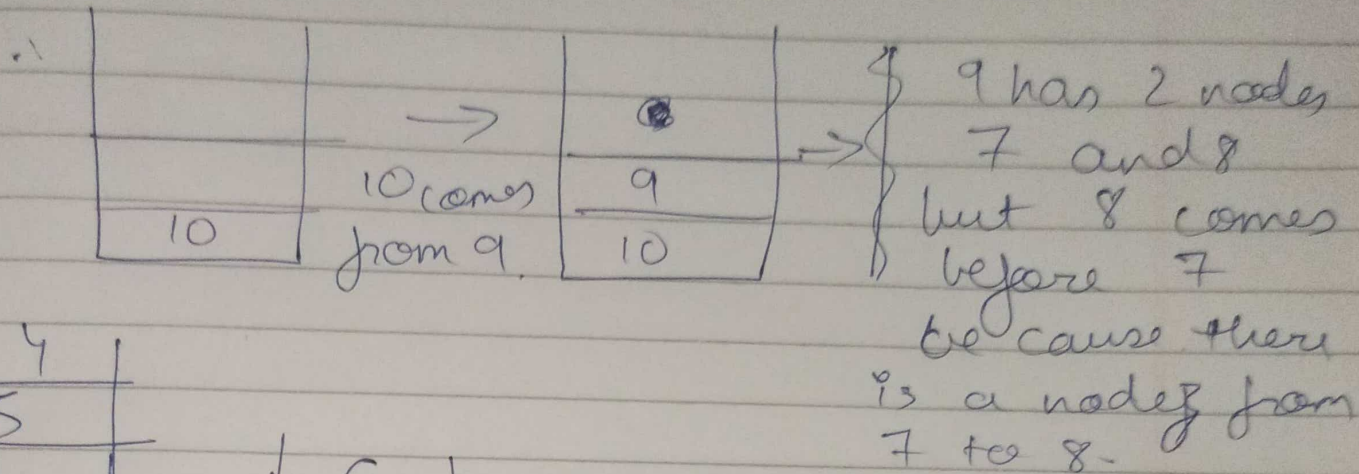 ∴
10
→
10 comes
from 9.
9
10
→
9 has 2 nodes
7 and 8
but 8 comes
before 7
because there
is a node from
7 to 8.
4
5